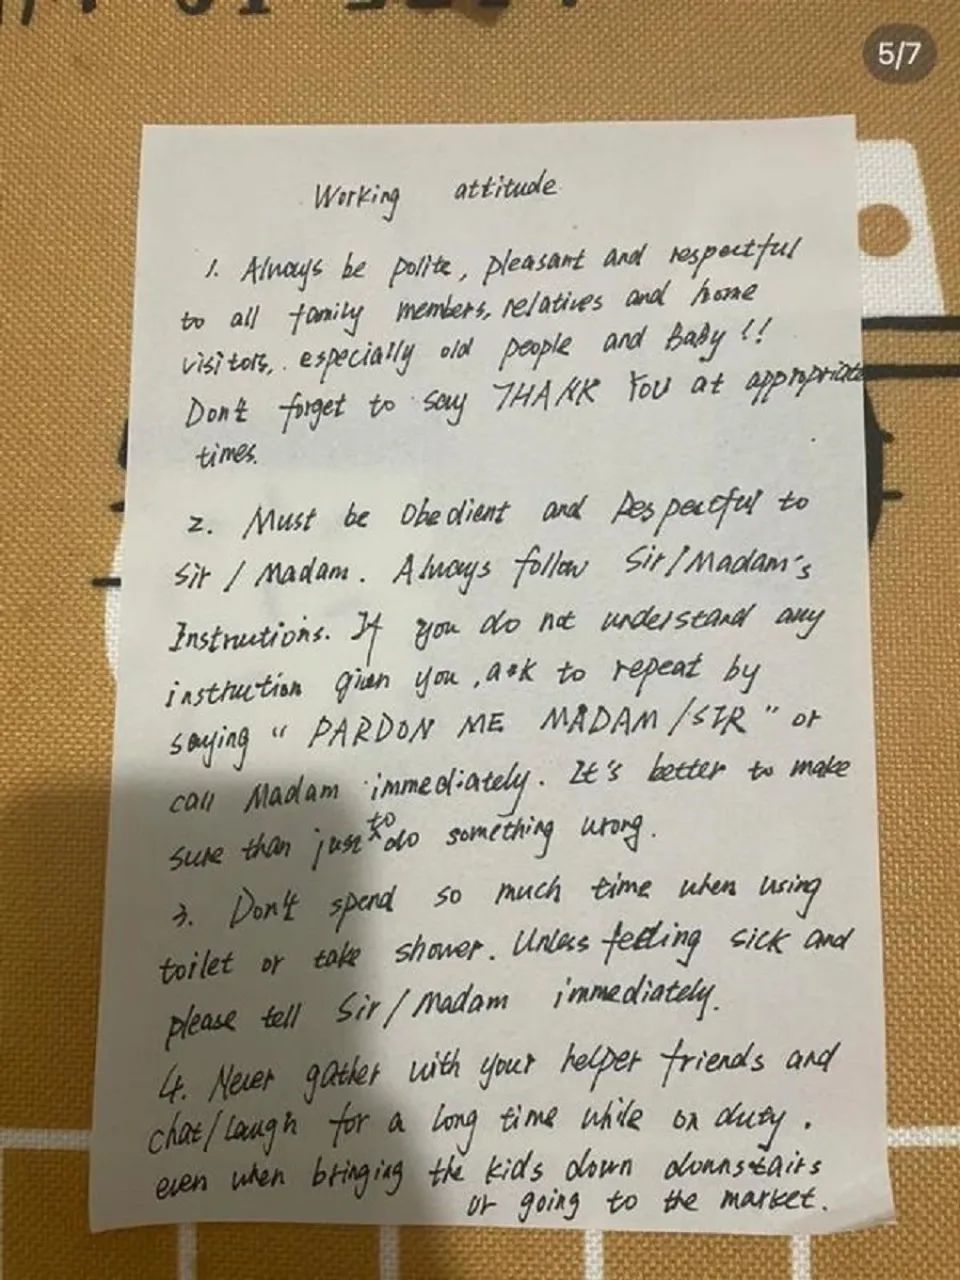 5/7
Working attitude
1. Always be polite, pleasant and respectful
to all family members, relatives and home
visitors, especially old people and BaBy !!
Don't forget to say THANK YOU at appropriate
times.
2. Must be Obedient and Respectful to
Sir / Madam. Always follow Sir/Madam's
Instructions. If you do not understand any
instruction given you, ask to repeat by
saying "PARDON ME MADAM/SIR" or
call Madam immediately. It's better to make
sure than just to do something wrong.
3. Don't spend so much time when using
toilet or take shower. Unless feeling sick and
please tell Sir/Madam immediately.
4. Never gather with your helper friends and
chat/laugh for a long time while on duty.
even when bringing the kids down downstairs
or going to the market.